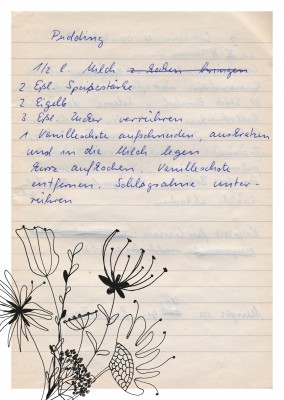 Pudding
1/2 l. Milch z. Kochen bringen
2 Eßl. Speisestärke
2 Eigelb
3 Eßl. Zucker verrühren
1 Vanilleschote aufschneiden, auskratzen
und in die Milch legen
kurz aufkochen. Vanilleschote
entfernen. Schlagsahne unter-
rühren